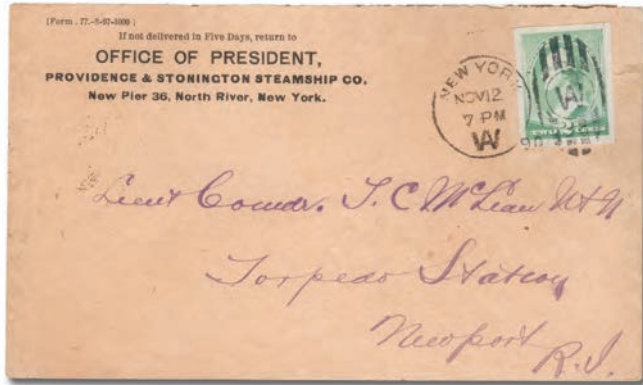 [Form . 77.-8-97-5000 ]
If not delivered in Five Days, return to
OFFICE OF PRESIDENT,
PROVIDENCE & STONINGTON STEAMSHIP CO.
New Pier 36, North River, New York.
NEW YORK
NOV 12
7 PM
W
90
W
Lieut Comdr. T. C. McLean USN
Torpedo Station
Newport
R.I.